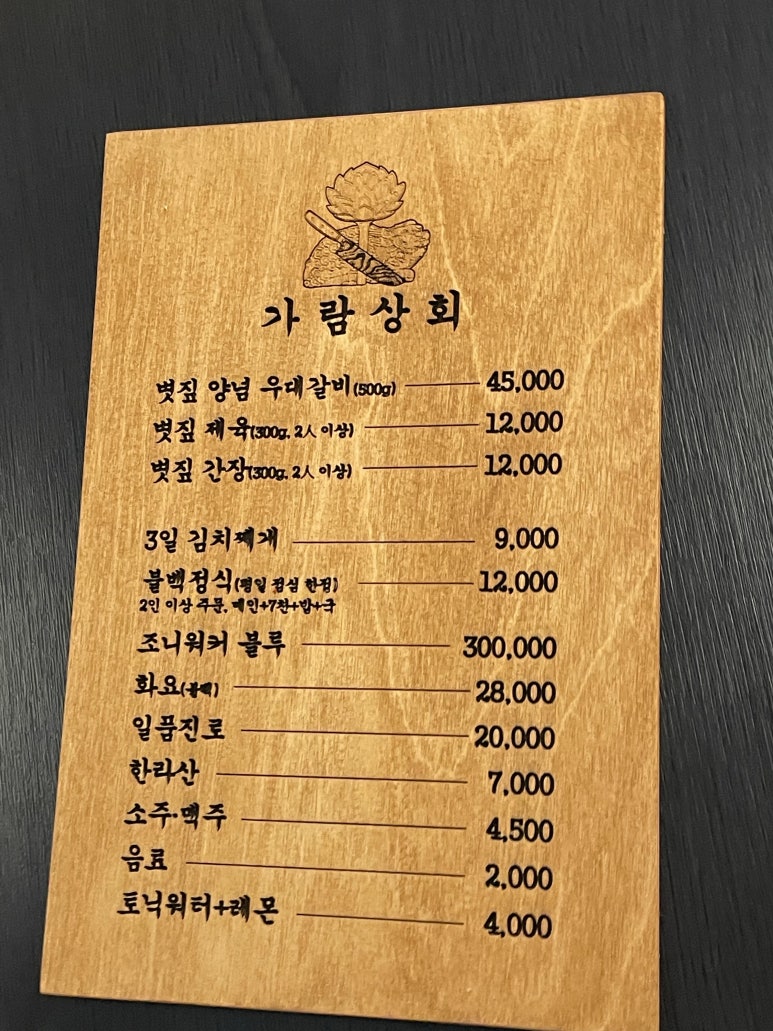 가람상회
볏짚 양념 우대갈비(500g) 45,000
볏짚 제육(300g, 2人 이상) 12,000
볏짚 간장(300g, 2人 이상) 12,000
3일 김치찌개 9,000
불백정식(평일 점심 한정) 12,000
2인 이상 주문, 메인+7찬+밥+국
조니워커 블루 300,000
화요 28,000
일품진로 20,000
한라산 7,000
소주·맥주 4,500
음료 2,000
토닉워터+레몬 4,000